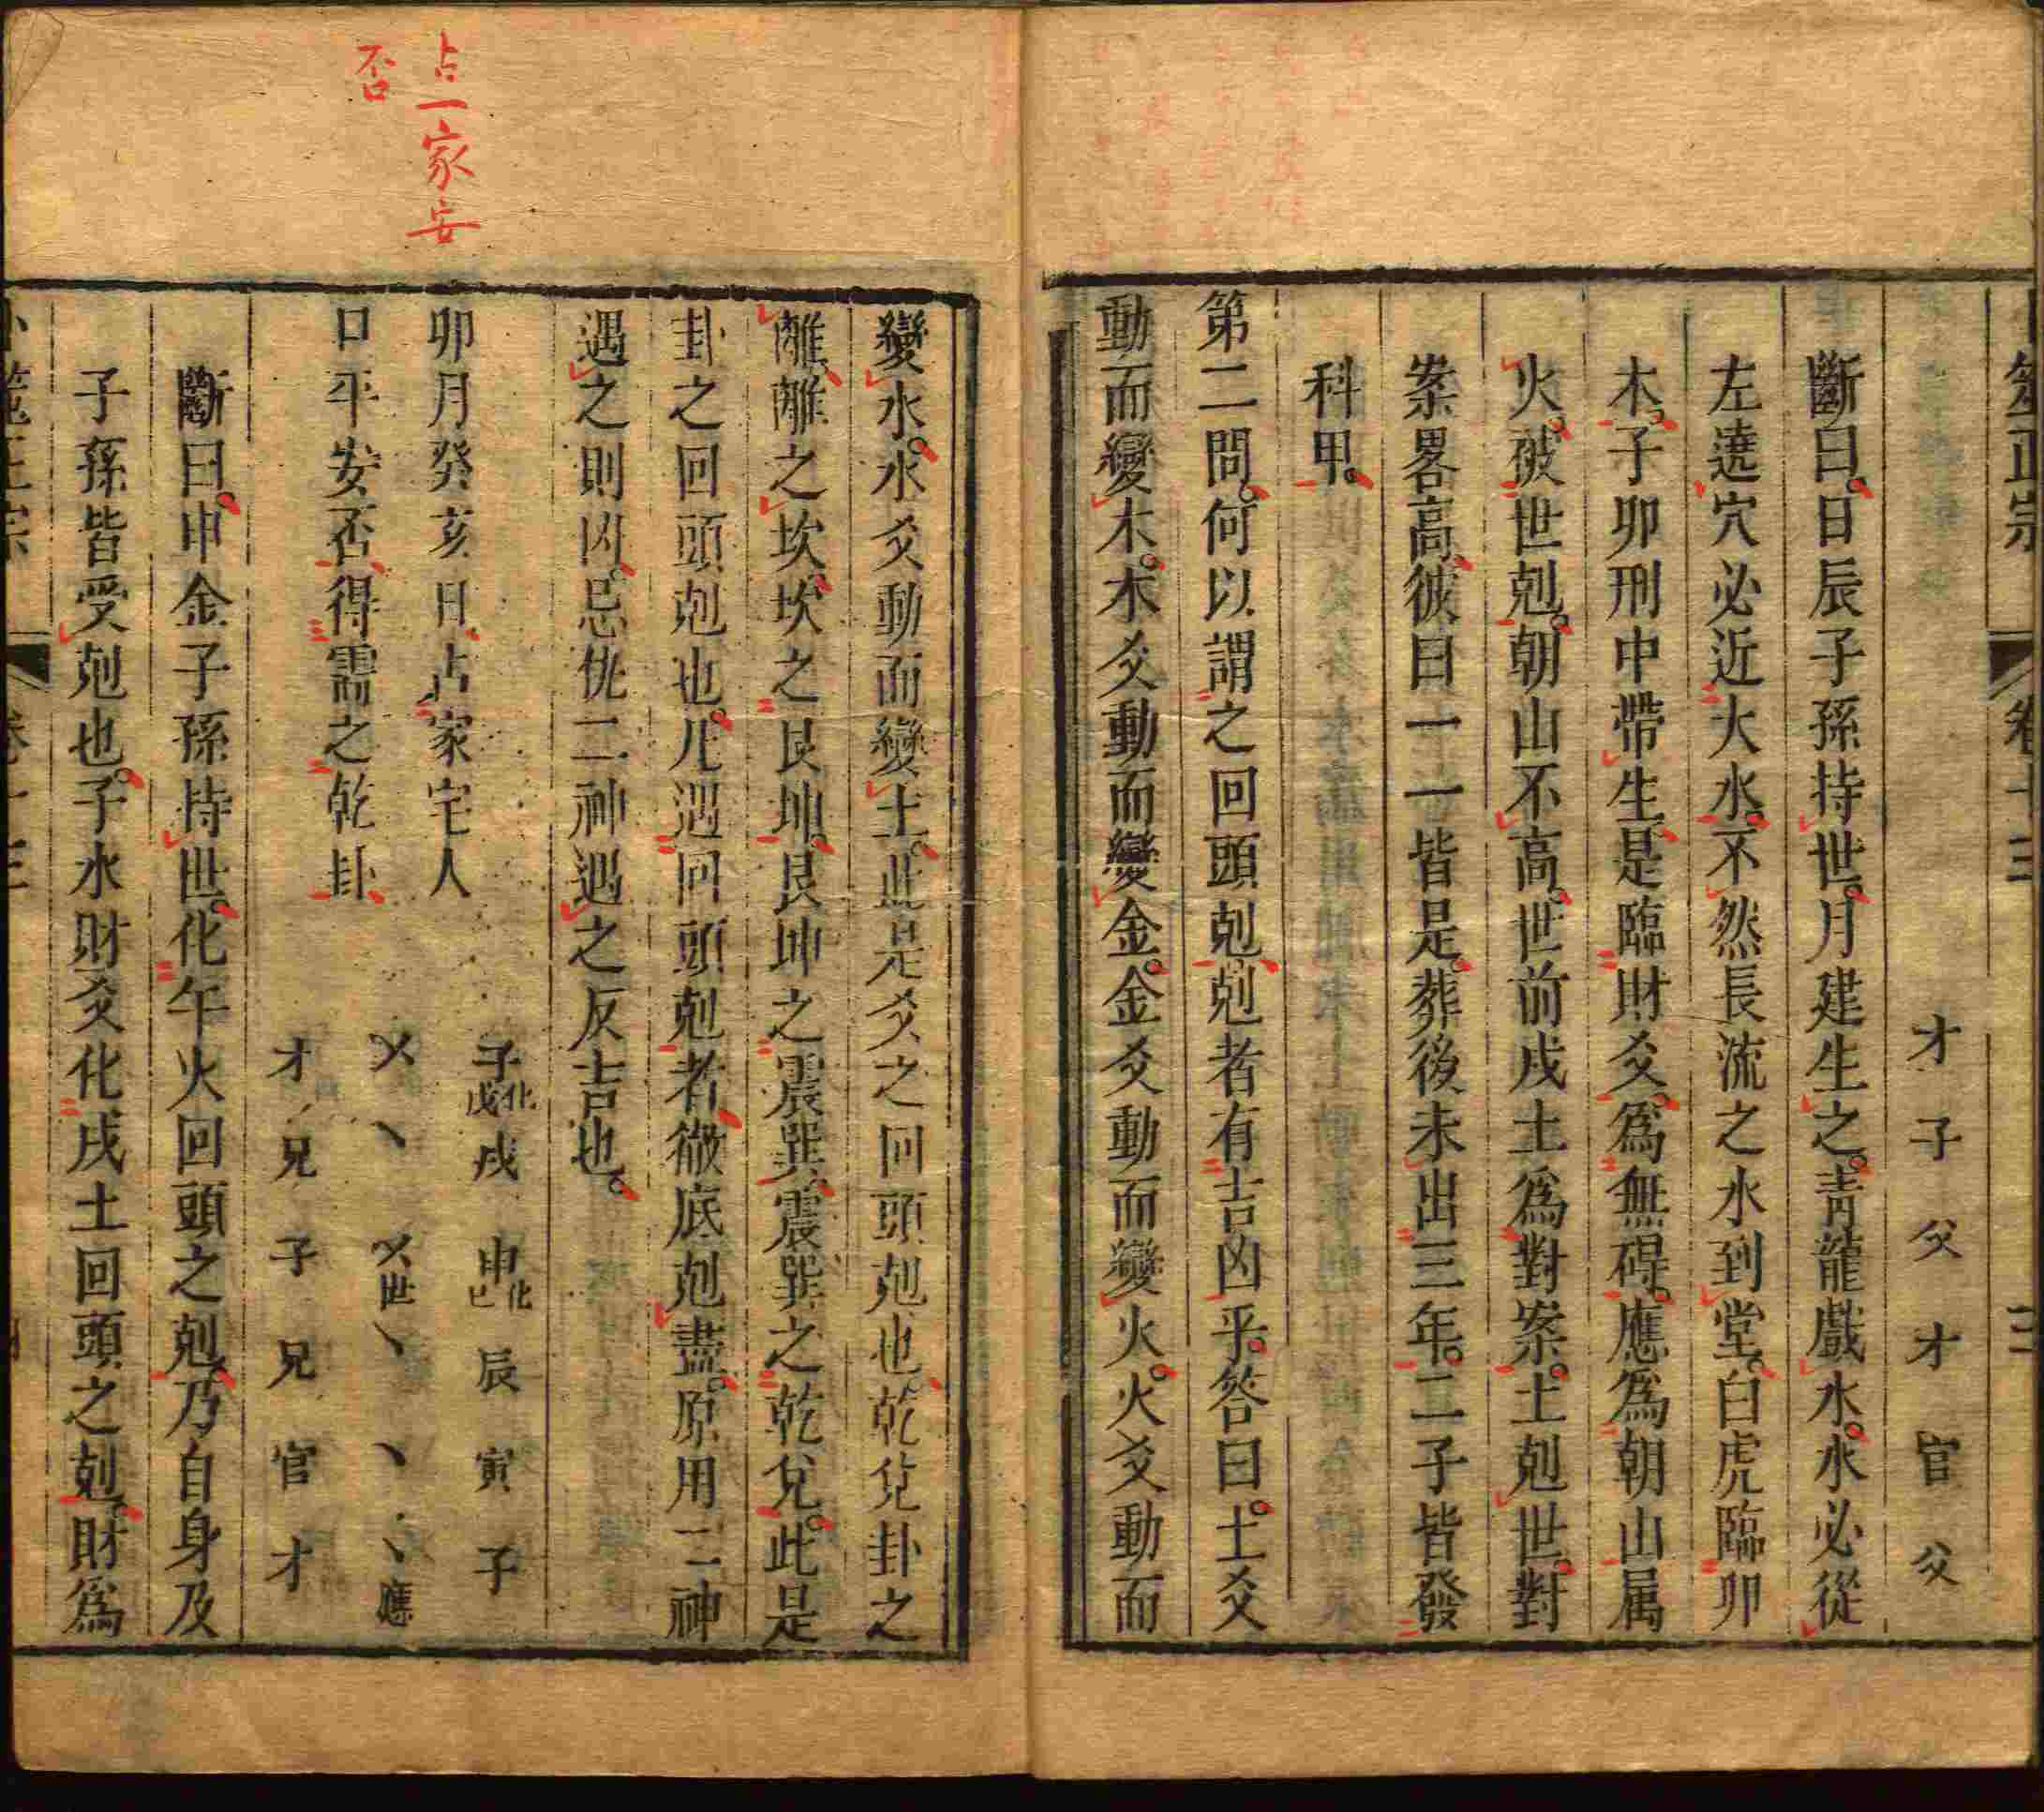 筮正宗 卷十三 三
才 子 父 才 官 父
斷曰日辰子孫持世月建生之青龍戲水水必從
左遶穴必近大水不然長流之水到堂白虎臨卯
木子卯刑中帶生是臨財爻爲無碍應爲朝山属
火被世剋朝山不高世前戌土爲對案土剋世對
案畧高彼曰一一皆是葬後未出三年二子皆發
科甲
第二問何以謂之回頭剋剋者有吉凶乎答曰土爻
動而變木木爻動而變金金爻動而變火火爻動而
占一家安
否
變水水爻動而變土此是爻之回頭剋也乾兌卦之
離離之坎坎之艮坤艮坤之震巽震巽之乾兌此是
卦之回頭剋也凡遇回頭剋者徹底剋盡原用二神
遇之則凶忌仇二神遇之反吉也
子化戌 戌 申化巳 辰 寅 子
卯月癸亥日占家宅人
乂 丶 乂世 丶 丶 丶應
口平安否得需之乾卦
才 兄 子 兄 官 才
斷曰申金子孫持世化午火回頭之剋乃自身及
子孫皆受剋也子水財爻化戌土回頭之剋財爲
卜筮正宗 卷十三